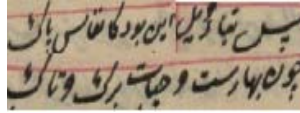 پس بتاویل این بود کانفاس پاک
چون بهارست و حیات برگ و تاک